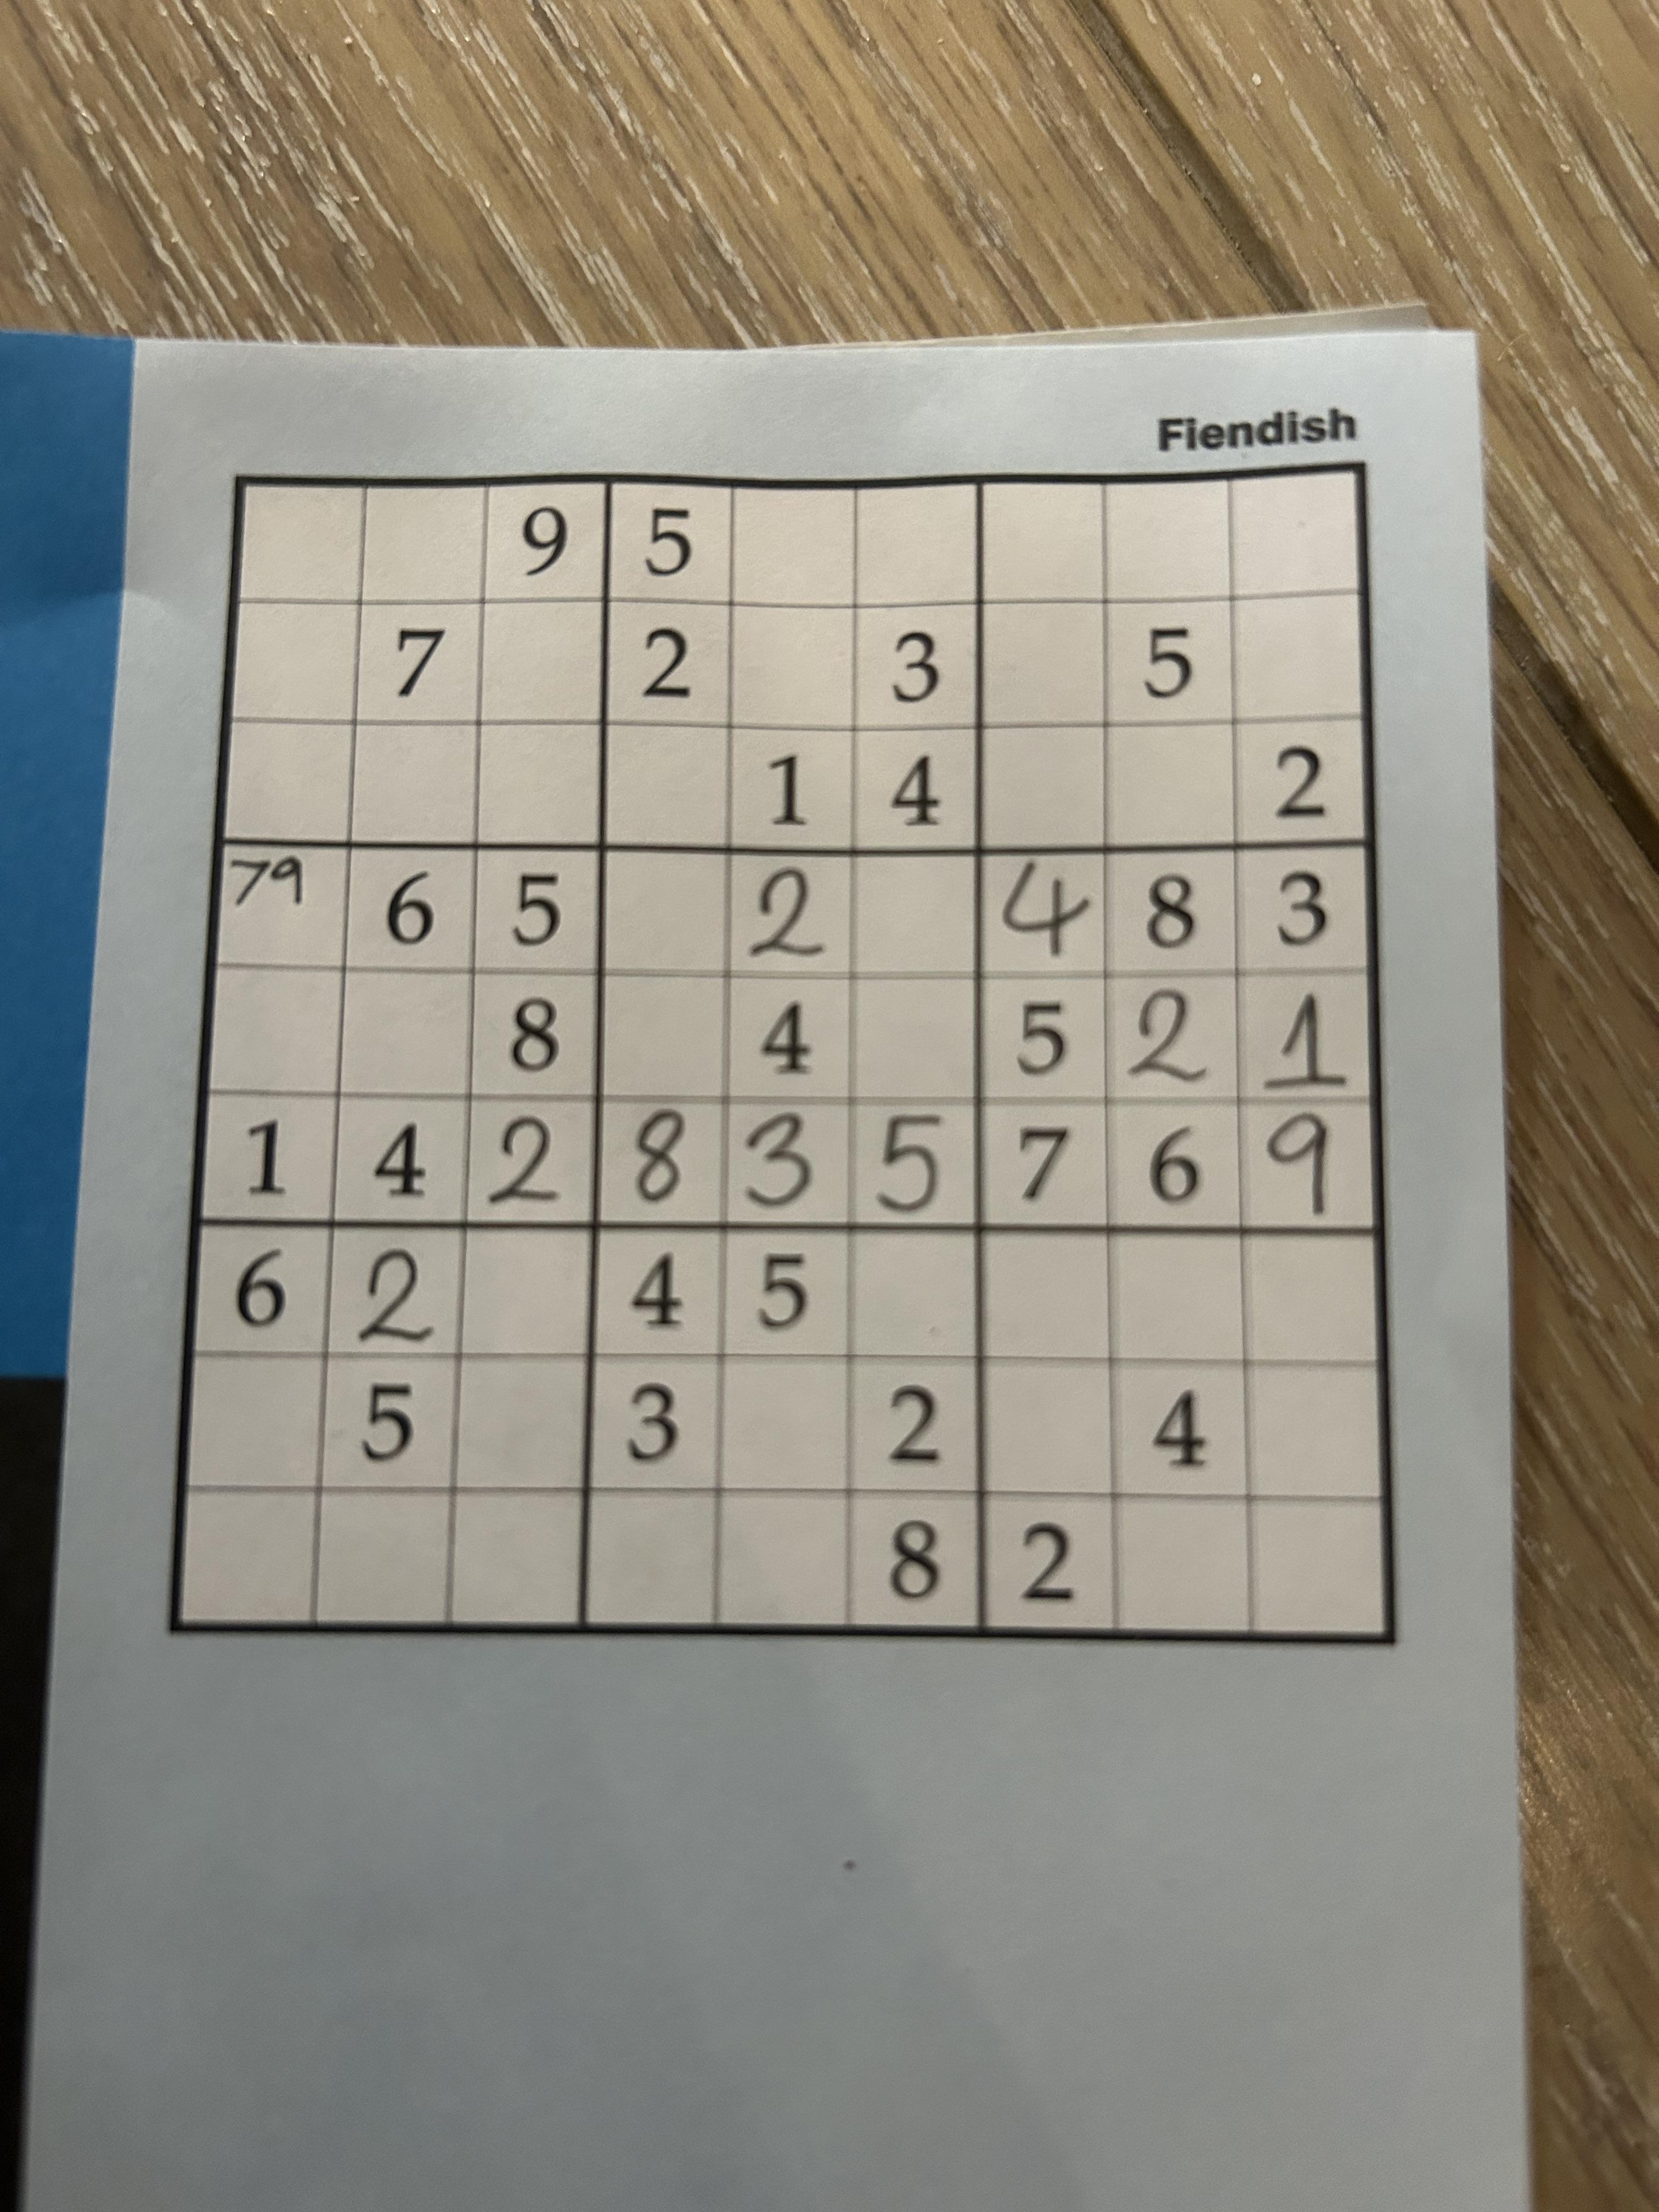 Fiendish
9 5
7 2 3 5
1 4 2
79 6 5 2 4 8 3
8 4 5 2 1
1 4 2 8 3 5 7 6 9
6 2 4 5
5 3 2 4
8 2